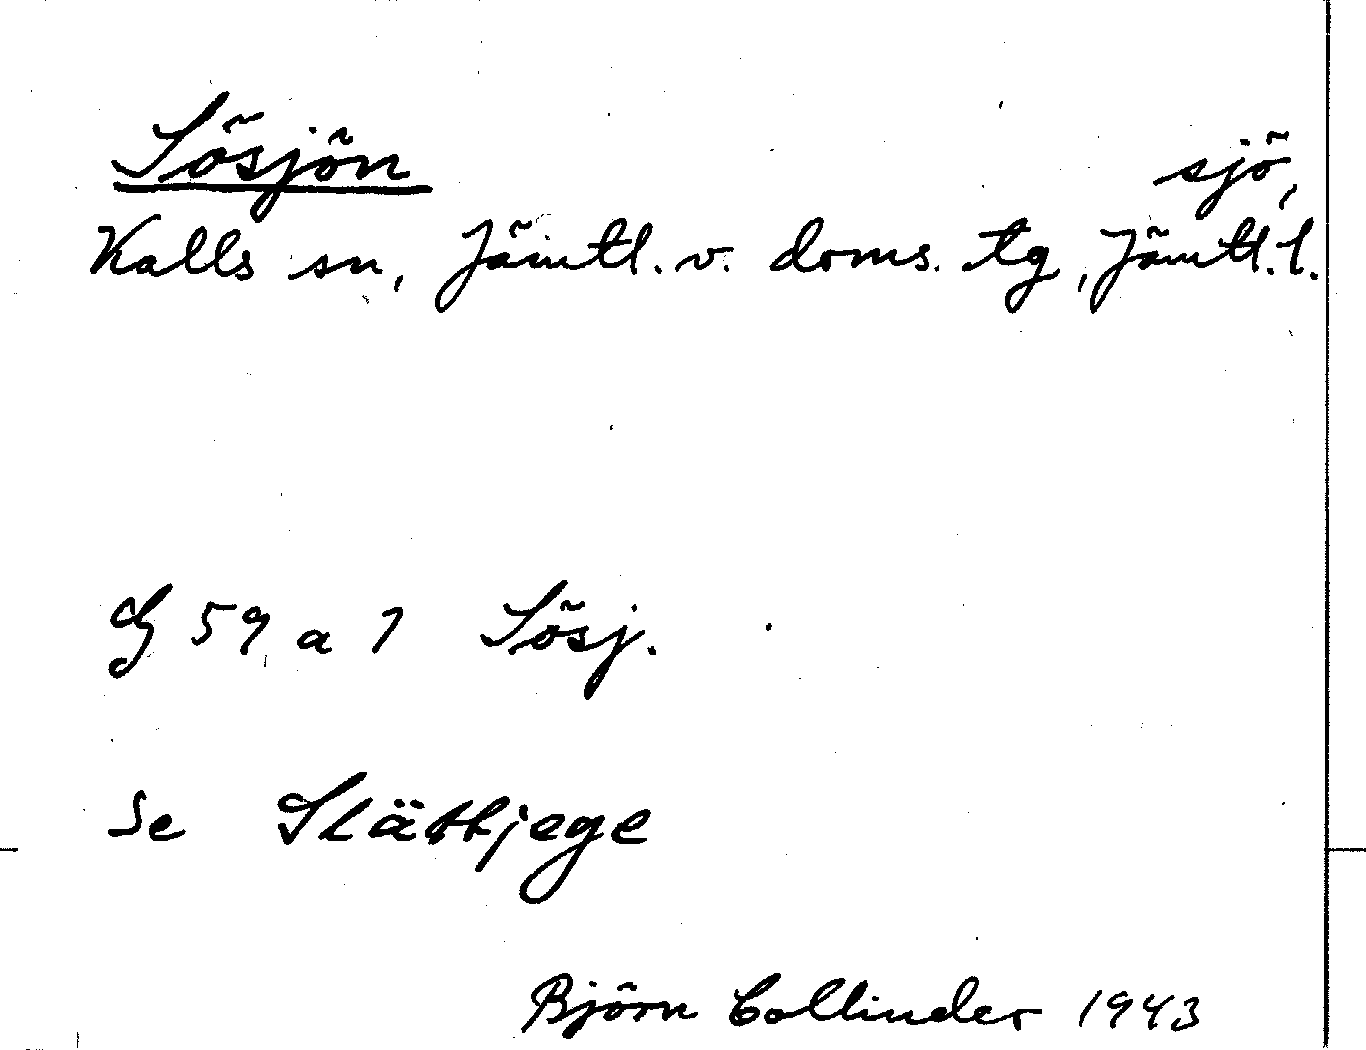 Sösjön sjö,
Kalls sn, Jämtl. v. doms. tg, Jämtl. l.
G 59 a 7 Sösj.
Se Slätjege
Björn Collinder 1943